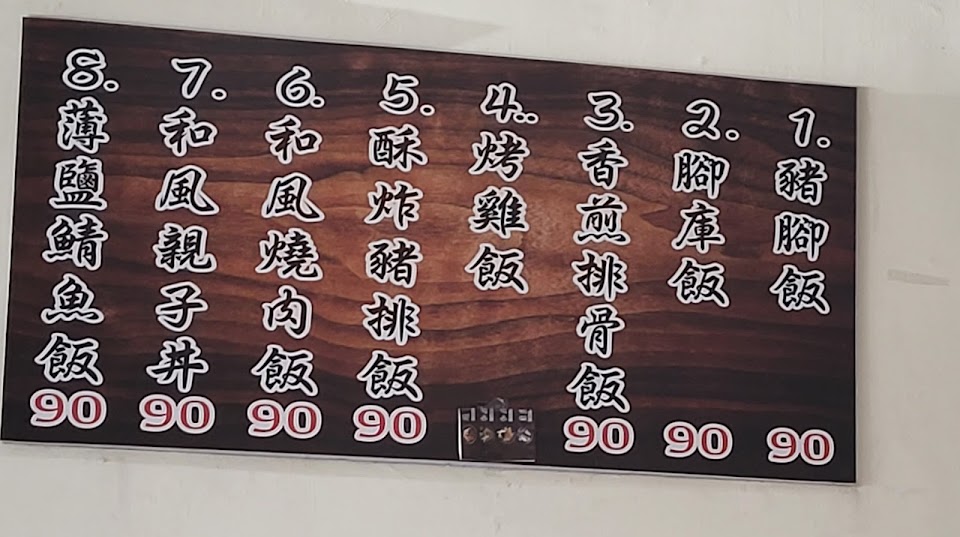 1.豬腳飯90
2.腳庫飯90
3.香煎排骨飯90
4..烤雞飯
5.酥炸豬排飯90
6.和風燒肉飯90
7.和風親子丼90
8.薄鹽鯖魚飯90